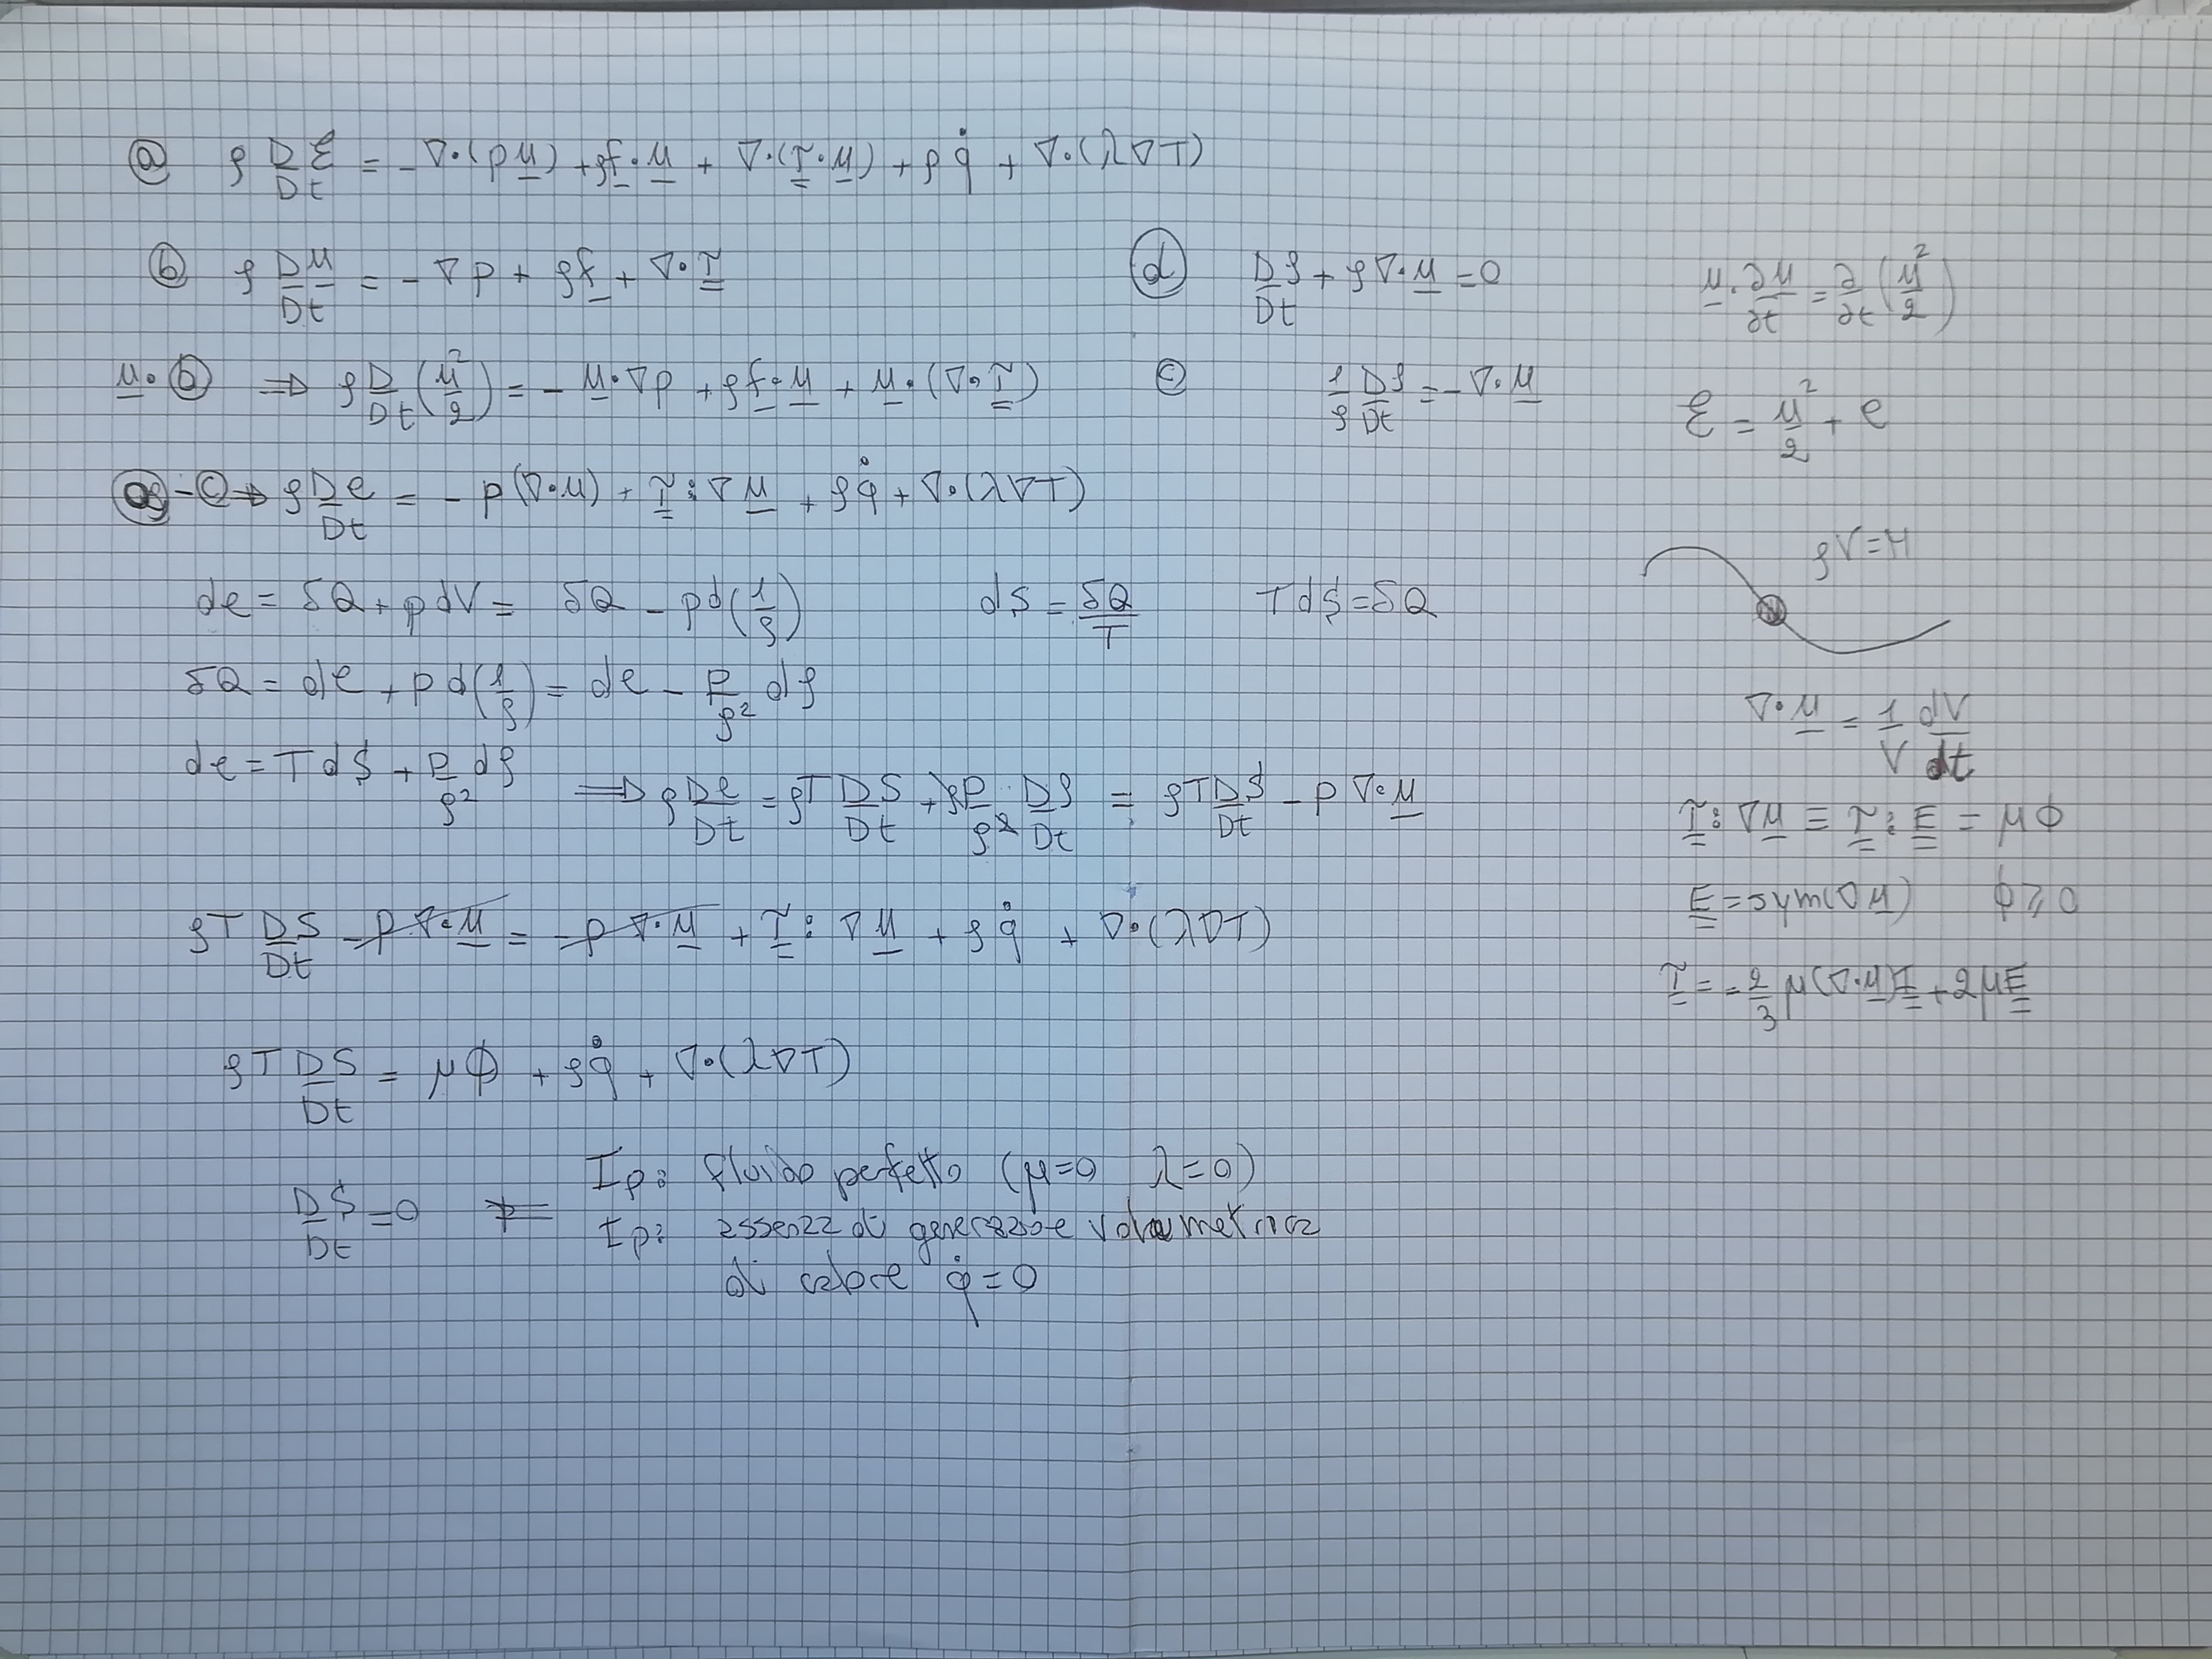 ⓐ ρ D𝓔/Dt = - ∇·(p u) + ρ f · u + ∇·(τ · u) + ρ q̇ + ∇·(λ∇T)
ⓑ ρ Du/Dt = - ∇p + ρ f + ∇·τ
ⓓ Dρ/Dt + ρ∇·u = 0
u·∂u/∂t = ∂/∂t (u²/2)
u·ⓑ ⇒ ρ D/Dt (u²/2) = - u·∇p + ρ f·u + u·(∇·τ) ⓒ
1/ρ Dρ/Dt = - ∇·u
𝓔 = u²/2 + e
ⓐ - ⓒ ⇒ ρ De/Dt = - p(∇·u) + τ : ∇u + ρ q̇ + ∇·(λ∇T)
ρV = M
de = δQ + p dV = δQ - p d(1/ρ)
dS = δQ/T
T dS = δQ
δQ = de + p d(1/ρ) = de - p/ρ² dρ
∇·u = 1/V dV/dt
de = T dS + p/ρ² dρ
⇒ ρ De/Dt = ρT DS/Dt + ρp/ρ² Dρ/Dt = ρT DS/Dt - p ∇·u
τ : ∇u ≡ τ : E = μΦ
E = sym(∇u) Φ ≥ 0
ρT DS/Dt - p ∇·u = - p ∇·u + τ : ∇u + ρ q̇ + ∇·(λ∇T)
τ = - 2/3 μ(∇·u)I + 2μE
ρT DS/Dt = μΦ + ρq̇ + ∇·(λ∇T)
Ip: fluido perfetto (μ=0 λ=0)
DS/Dt = 0 ⇐
Ip: assenza di generazione volumetrica
di calore q̇ = 0